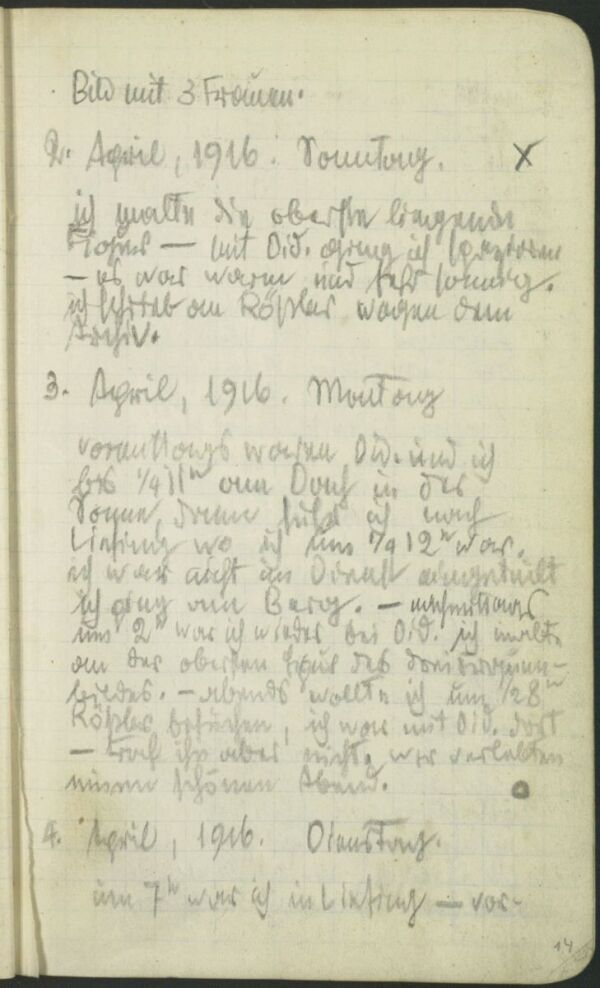 Bild mit 3 Frauen.
2. April, 1916. Sonntag. X
ich malte die oberste liegende
— mit Did. ging ich spazieren
— es war warm und sehr sonnig.
ich schrieb an Rößler wegen dem
Archiv.
3. April, 1916. Montag
vormittags waren Did. und ich
bis 1/4 11h am Dach in der
Sonne, dann fuhr ich nach
Liesing wo ich um 12h war.
ich war nicht in Dienst eingeteilt
ich ging am Berg. — nachmittags
um 2h war ich wieder bei Did. ich malte
an der obersten Figur des dreifrauen-
bildes. — abends wollte ich um 1/2 8h
Rößler besuchen, ich war mit Did. dort
— traf ihn aber nicht, wir verlebten
einen schönen Abend.
4. April, 1916. Dienstag.
um 7h war ich in Liesing — vor-
14